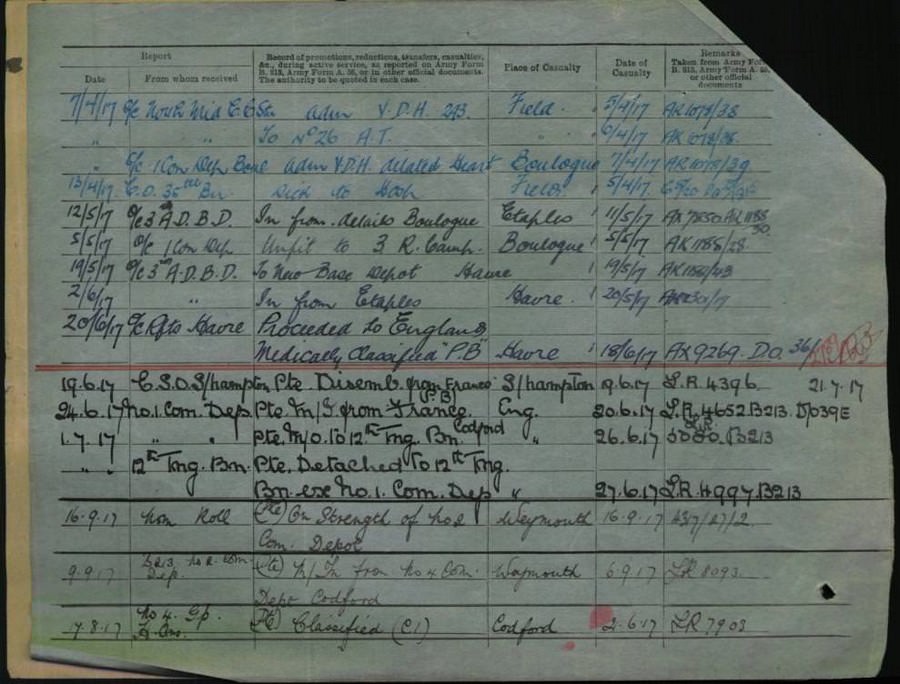 Report
Record of promotions, reductions, transfers, casualties,
&c., during active service, as reported on Army Form
B. 213, Army Form A. 36, or in other official documents.
The authority to be quoted in each case.
Place of Casualty
Date of
Casualty
Remarks
Taken from Army Form
B. 213, Army Form A. 36,
or other official
documents
Date
From whom received
7/4/17 O/c North Mid C.C.Stn adm V.D.H. 2B. Field 5/4/17
" " To No 26 A.T. " 6/4/17
" O/c 1 Con Dep Boul adm V.D.H. dilated Heart Boulogue 7/4/17
13/4/17 C.O. 35th Bn. Sick to Hosp Field 5/4/17
12/5/17 O/c 3 A.D.B.D. In from details Boulogue Etaples 11/5/17
5/5/17 O/c 1 Con Dep Unfit to 3 R. Camp. Boulogue 5/5/17 AK1185/28
19/5/17 O/c 3rd A.D.B.D. To New Base Depot Havre 19/5/17
2/6/17 " In from Etaples Havre. 20/5/17
20/6/17 O/c Rfts Havre Proceeded to England
Medically Classified "P.B" Havre 18/6/17 AX9269. D.O. 36/
19.6.17 E.S.O. S/hampton Pte. Disemb. from France S/hampton 19.6.17 L.R. 4396 21.7.17
(P.B)
24.6.17 No.1. Com. Dep. Pte. M/I from France. Eng. 20.6.17 L.R. 4652 B213.
1.7.17 " " Pte. M/O. to 12th Tng. Bn. Codford " 26.6.17 L.R. 5080. B213
" " 12th Tng. Bn. Pte. Detached to 12th Tng.
Bn. ex No. 1. Com. Dep " 27.6.17 L.R. 4997 B213
16.9.17 Nom Roll (Pte) On Strength of No 2 Weymouth 16.9.17
Com. Depot
9.9.17 B213 No 2. Com. Dep. (Pte) M/In from No 4 Com. Weymouth 6.9.17 LR 8093
Depot Codford
No 4. Gp.
(Pte) Classified (C1) Codford LR 7903